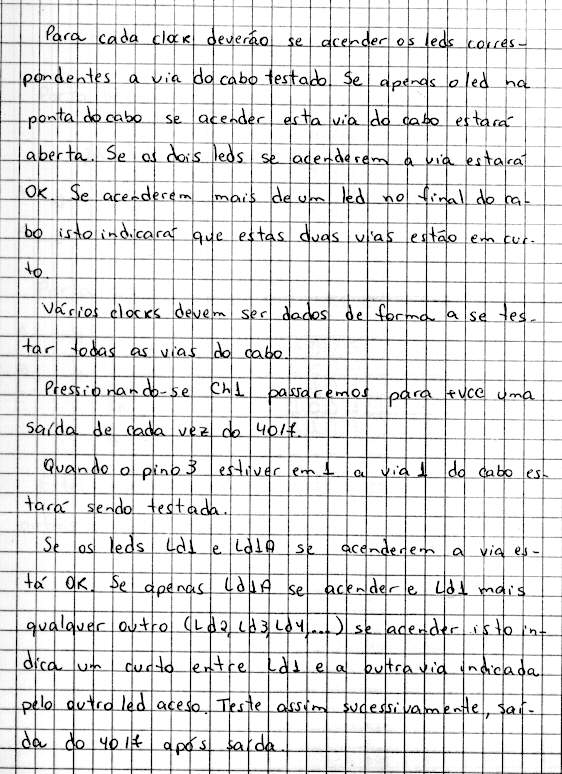 Para cada clock deverão se acender os leds corres-
pondentes a via do cabo testado. Se apenas o led na
ponta do cabo se acender esta via do cabo estará
aberta. Se os dois leds se acenderem a via estará
OK. Se acenderem mais de um led no final do ca-
bo isto indicará que estas duas vias estão em cur-
to.
Vários clocks devem ser dados de forma a se tes-
tar todas as vias do cabo.
Pressionando-se Ch1 passaremos para +vcc uma
saída de cada vez do 4017.
Quando o pino 3 estiver em 1 a via 1 do cabo es-
tará sendo testada.
Se os leds Ld1 e Ld1A se acenderem a via es-
tá OK. Se apenas Ld1A se acender e Ld1 mais
qualquer outro (Ld2, Ld3, Ld4, ...) se acender isto in-
dica um curto entre Ld1 e a outra via indicada
pelo outro led aceso. Teste assim sucessivamente, saí-
da do 4017 após saída.